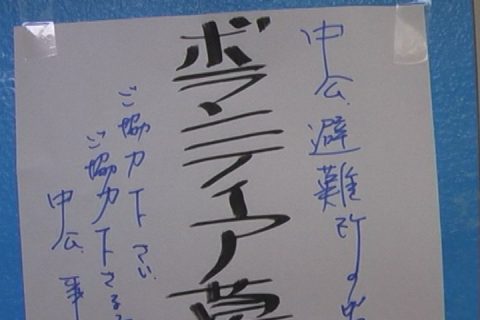 中公避難所の
ボランティア募
ご協力下さい
ご協力下さる
中公 事